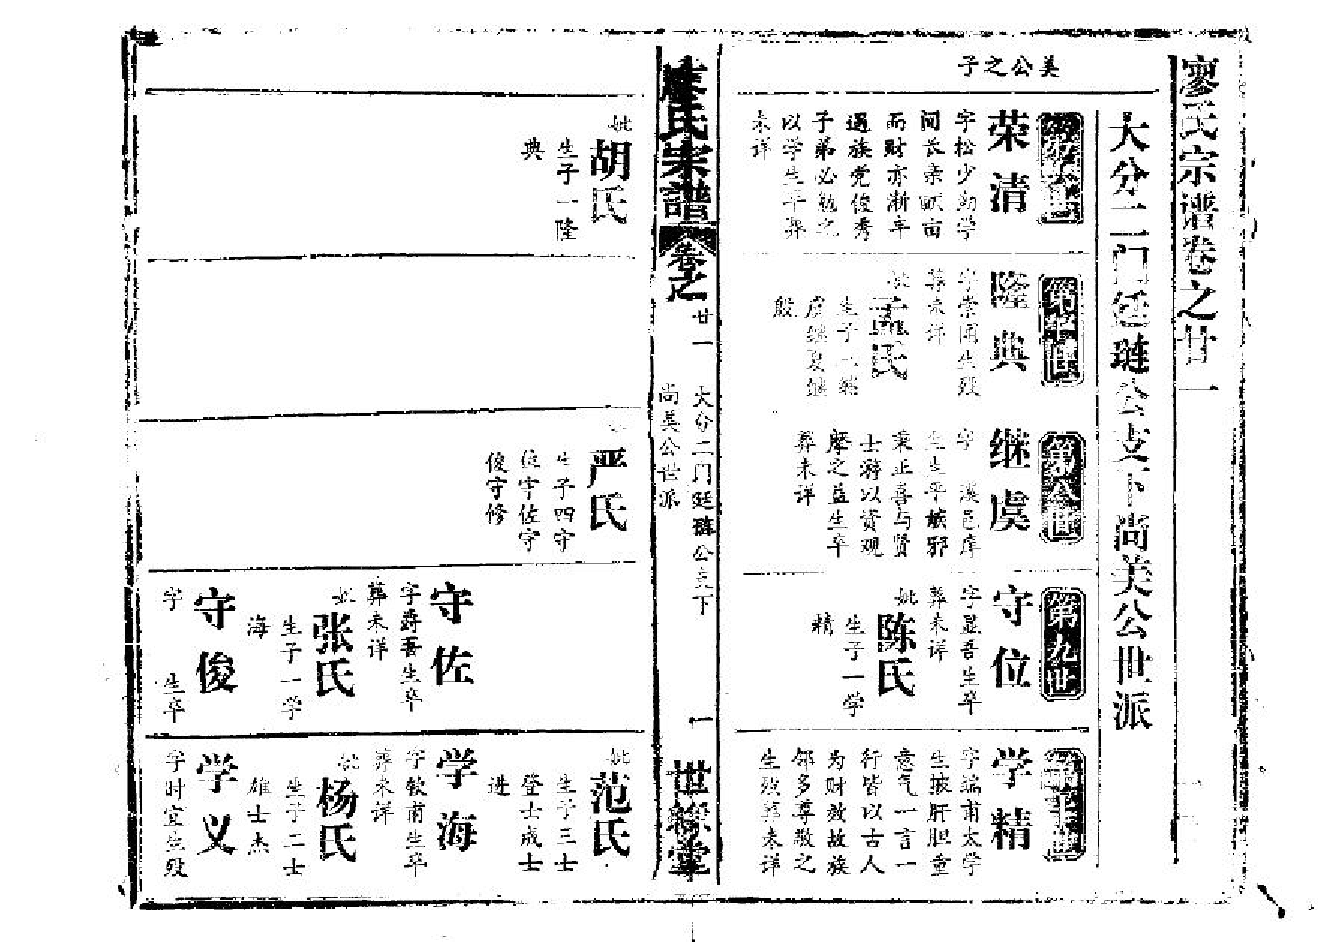 廖氏宗谱卷之廿一
大分二门廷琏公支下尚美公世派
美公之子
第六世
荣清
字松少幼学
间长亲畎亩
而财亦渐丰
遇族党俊秀
子弟必勉之
以学生卒葬
未详
第七世
隆典
字崇阁生殁
葬未详
妣
孟氏
生子二继
虞继夏继
殷
第八世
继虞
字 溪邑庠
生生平嫉邪
秉正喜与贤
士游以资观
摩之益生卒
葬未详
第九世
守位
字显吾生卒
葬未详
妣
陈氏
生子一学
精
第十世
学精
字端甫太学
生披肝胆重
意气一言一
行皆以古人
为财故故族
邻多尊敬之
生殁葬未详
廖氏宗谱
卷之
廿一
大分二门廷琏公支下
尚美公世派
一
世䌛堂
妣
胡氏
生子一隆
典
严氏
生子四守
位守佐守
俊守修
守佐
字爵吾生卒
葬未详
妣
张氏
生子一学
海
守俊
字 生卒
妣
范氏
生子三士
登士成士
进
学海
字教甫生卒
葬未详
妣
杨氏
生子二士
雄士杰
学义
字时宜生殁